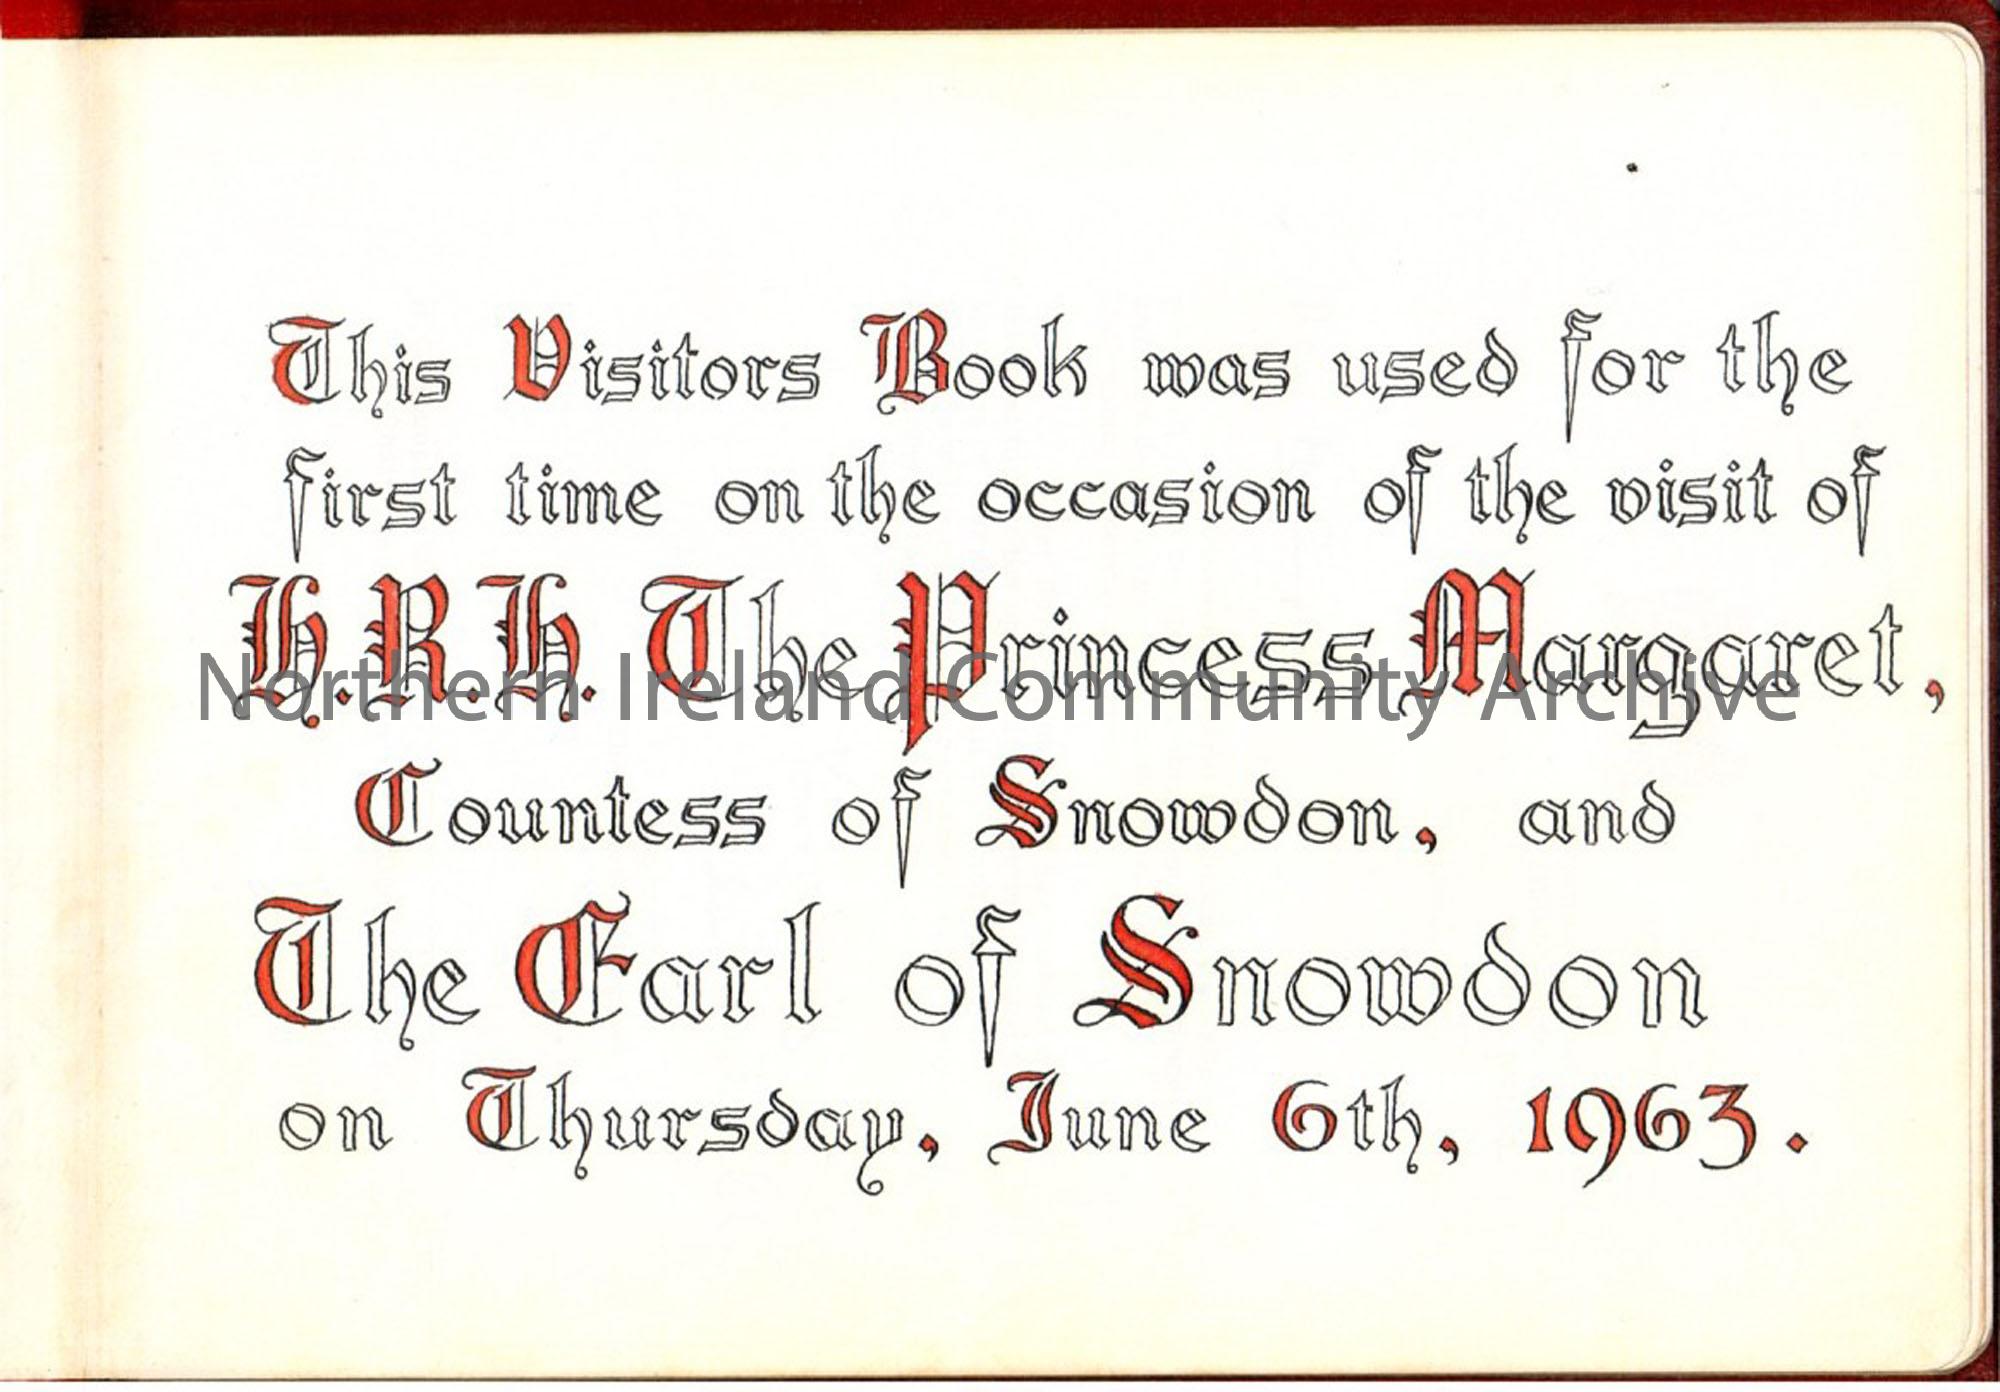 This Visitors Book was used for the
first time on the occasion of the visit of
H.R.H. The Princess Margaret,
Northern Ireland Community Archive
Countess of Snowdon, and
The Earl of Snowdon
on Thursday, June 6th, 1963.